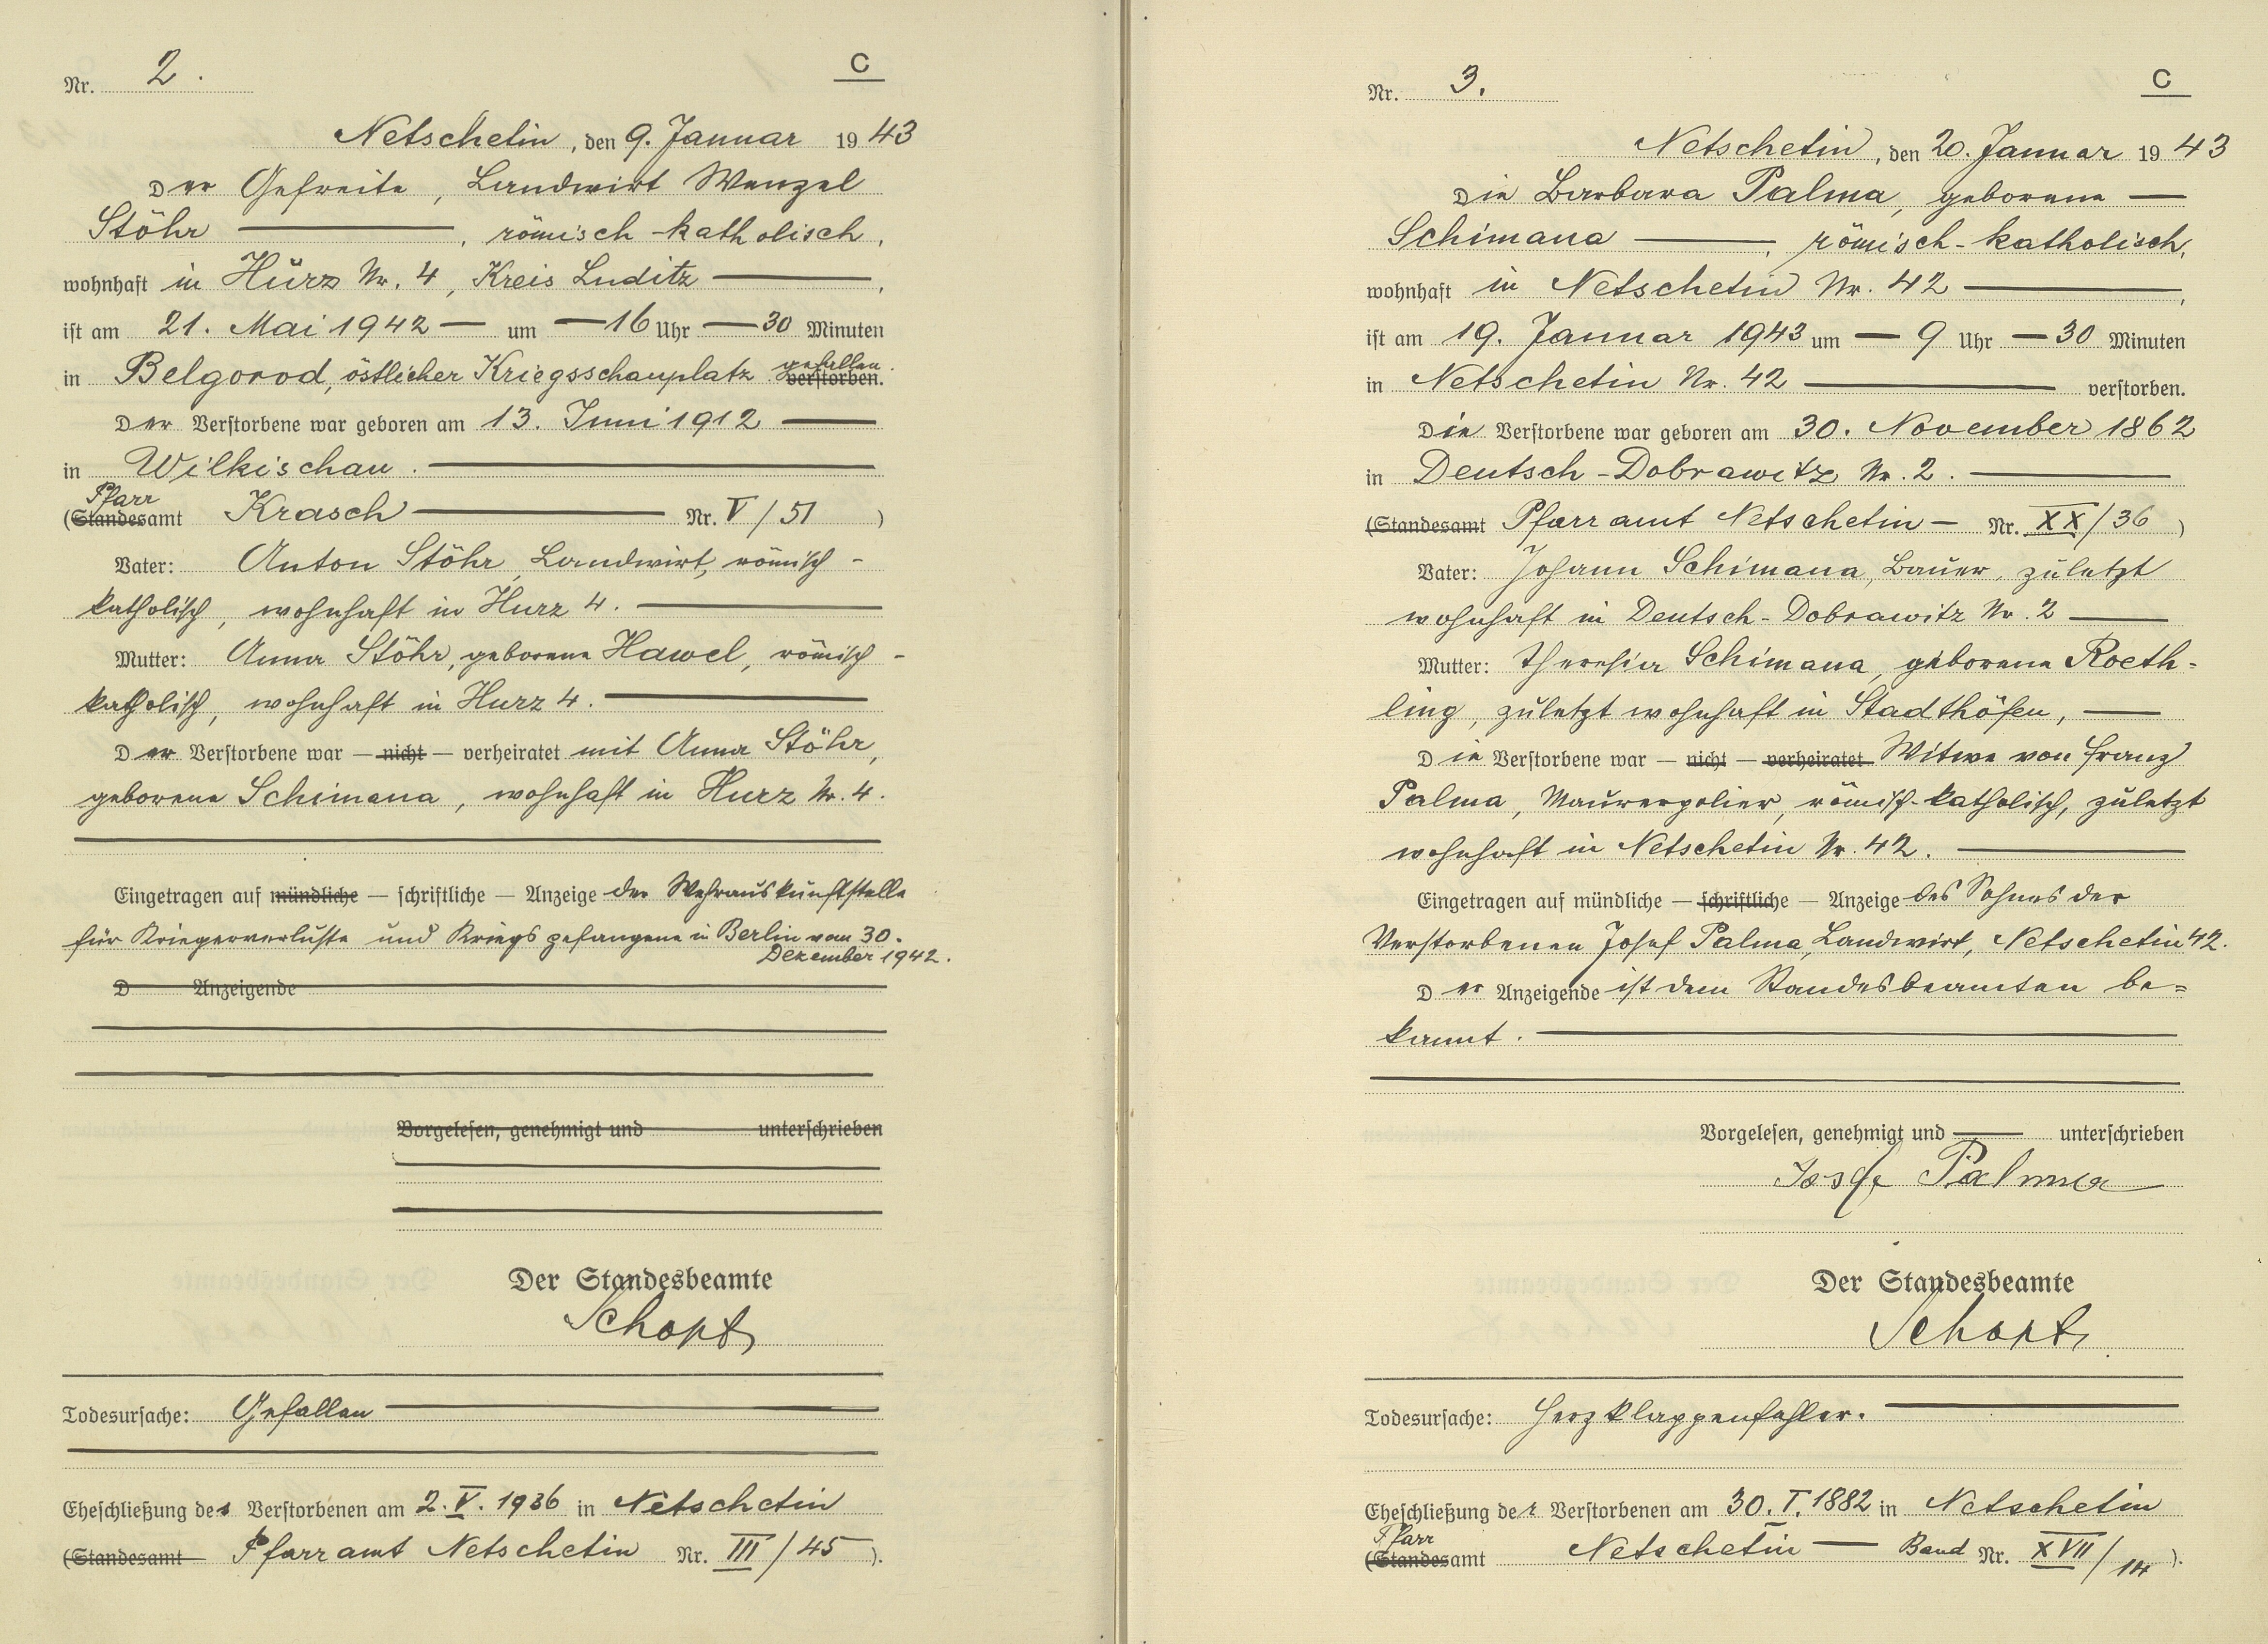 Nr. 2. C
Netschetin, den 9. Januar 1943
Der Gefreite, Landwirt Wenzel
Stöhr —, römisch-katholisch,
wohnhaft in Hürz Nr. 4, Kreis Luditz —,
ist am 21. Mai 1942 — um — 16 Uhr — 30 Minuten
in Belgorod, östlicher Kriegsschauplatz gefallen verstorben.
Der Verstorbene war geboren am 13. Juni 1912 —
in Wilkischau. —
Pfarr
(Standesamt Krasch — Nr. V/51 )
Vater: Anton Stöhr, Landwirt, römisch-
katholisch, wohnhaft in Hurz 4. —
Mutter: Anna Stöhr, geborene Hawel, römisch-
katholisch, wohnhaft in Hurz 4. —
Der Verstorbene war — nicht — verheiratet mit Anna Stöhr,
geborene Schimana, wohnhaft in Hurz Nr. 4.
Eingetragen auf mündliche — schriftliche — Anzeige der Wehrauskunftstelle
für Kriegerverluste und Kriegsgefangene in Berlin vom 30.
Dezember 1942.
D Anzeigende
Vorgelesen, genehmigt und unterschrieben
Der Standesbeamte
Schopf
Todesursache: Gefallen —
Eheschließung des Verstorbenen am 2. V. 1936 in Netschetin
(Standesamt Pfarramt Netschetin Nr. III/45 ).
Nr. 3. C
Netschetin, den 20. Januar 1943
Die Barbara Palma, geborene —
Schimana —, römisch-katholisch,
wohnhaft in Netschetin Nr. 42 —,
ist am 19. Januar 1943 um — 9 Uhr — 30 Minuten
in Netschetin Nr. 42 — verstorben.
Die Verstorbene war geboren am 30. November 1862
in Deutsch-Dobrawitz Nr. 2. —
(Standesamt Pfarramt Netschetin — Nr. XX/36 )
Vater: Johann Schimana, Bauer, zuletzt
wohnhaft in Deutsch-Dobrawitz Nr. 2 —
Mutter: Theresia Schimana, geborene Roeth-
ling, zuletzt wohnhaft in Stadthöfen, —
Die Verstorbene war — nicht — verheiratet Witwe von Franz
Palma, Maurerpolier, römisch-katholisch, zuletzt
wohnhaft in Netschetin Nr. 42. —
Eingetragen auf mündliche — schriftliche — Anzeige des Sohnes der
Verstorbenen Josef Palma, Landwirt, Netschetin 42.
Der Anzeigende ist dem Standesbeamten be=
kannt. —
Vorgelesen, genehmigt und — unterschrieben
Josef Palma
Der Standesbeamte
Schopf
Todesursache: Herzklappenfehler. —
Eheschließung der Verstorbenen am 30. I. 1882 in Netschetin
Pfarr
(Standesamt Netschetin — Band Nr. XVII/14 ).